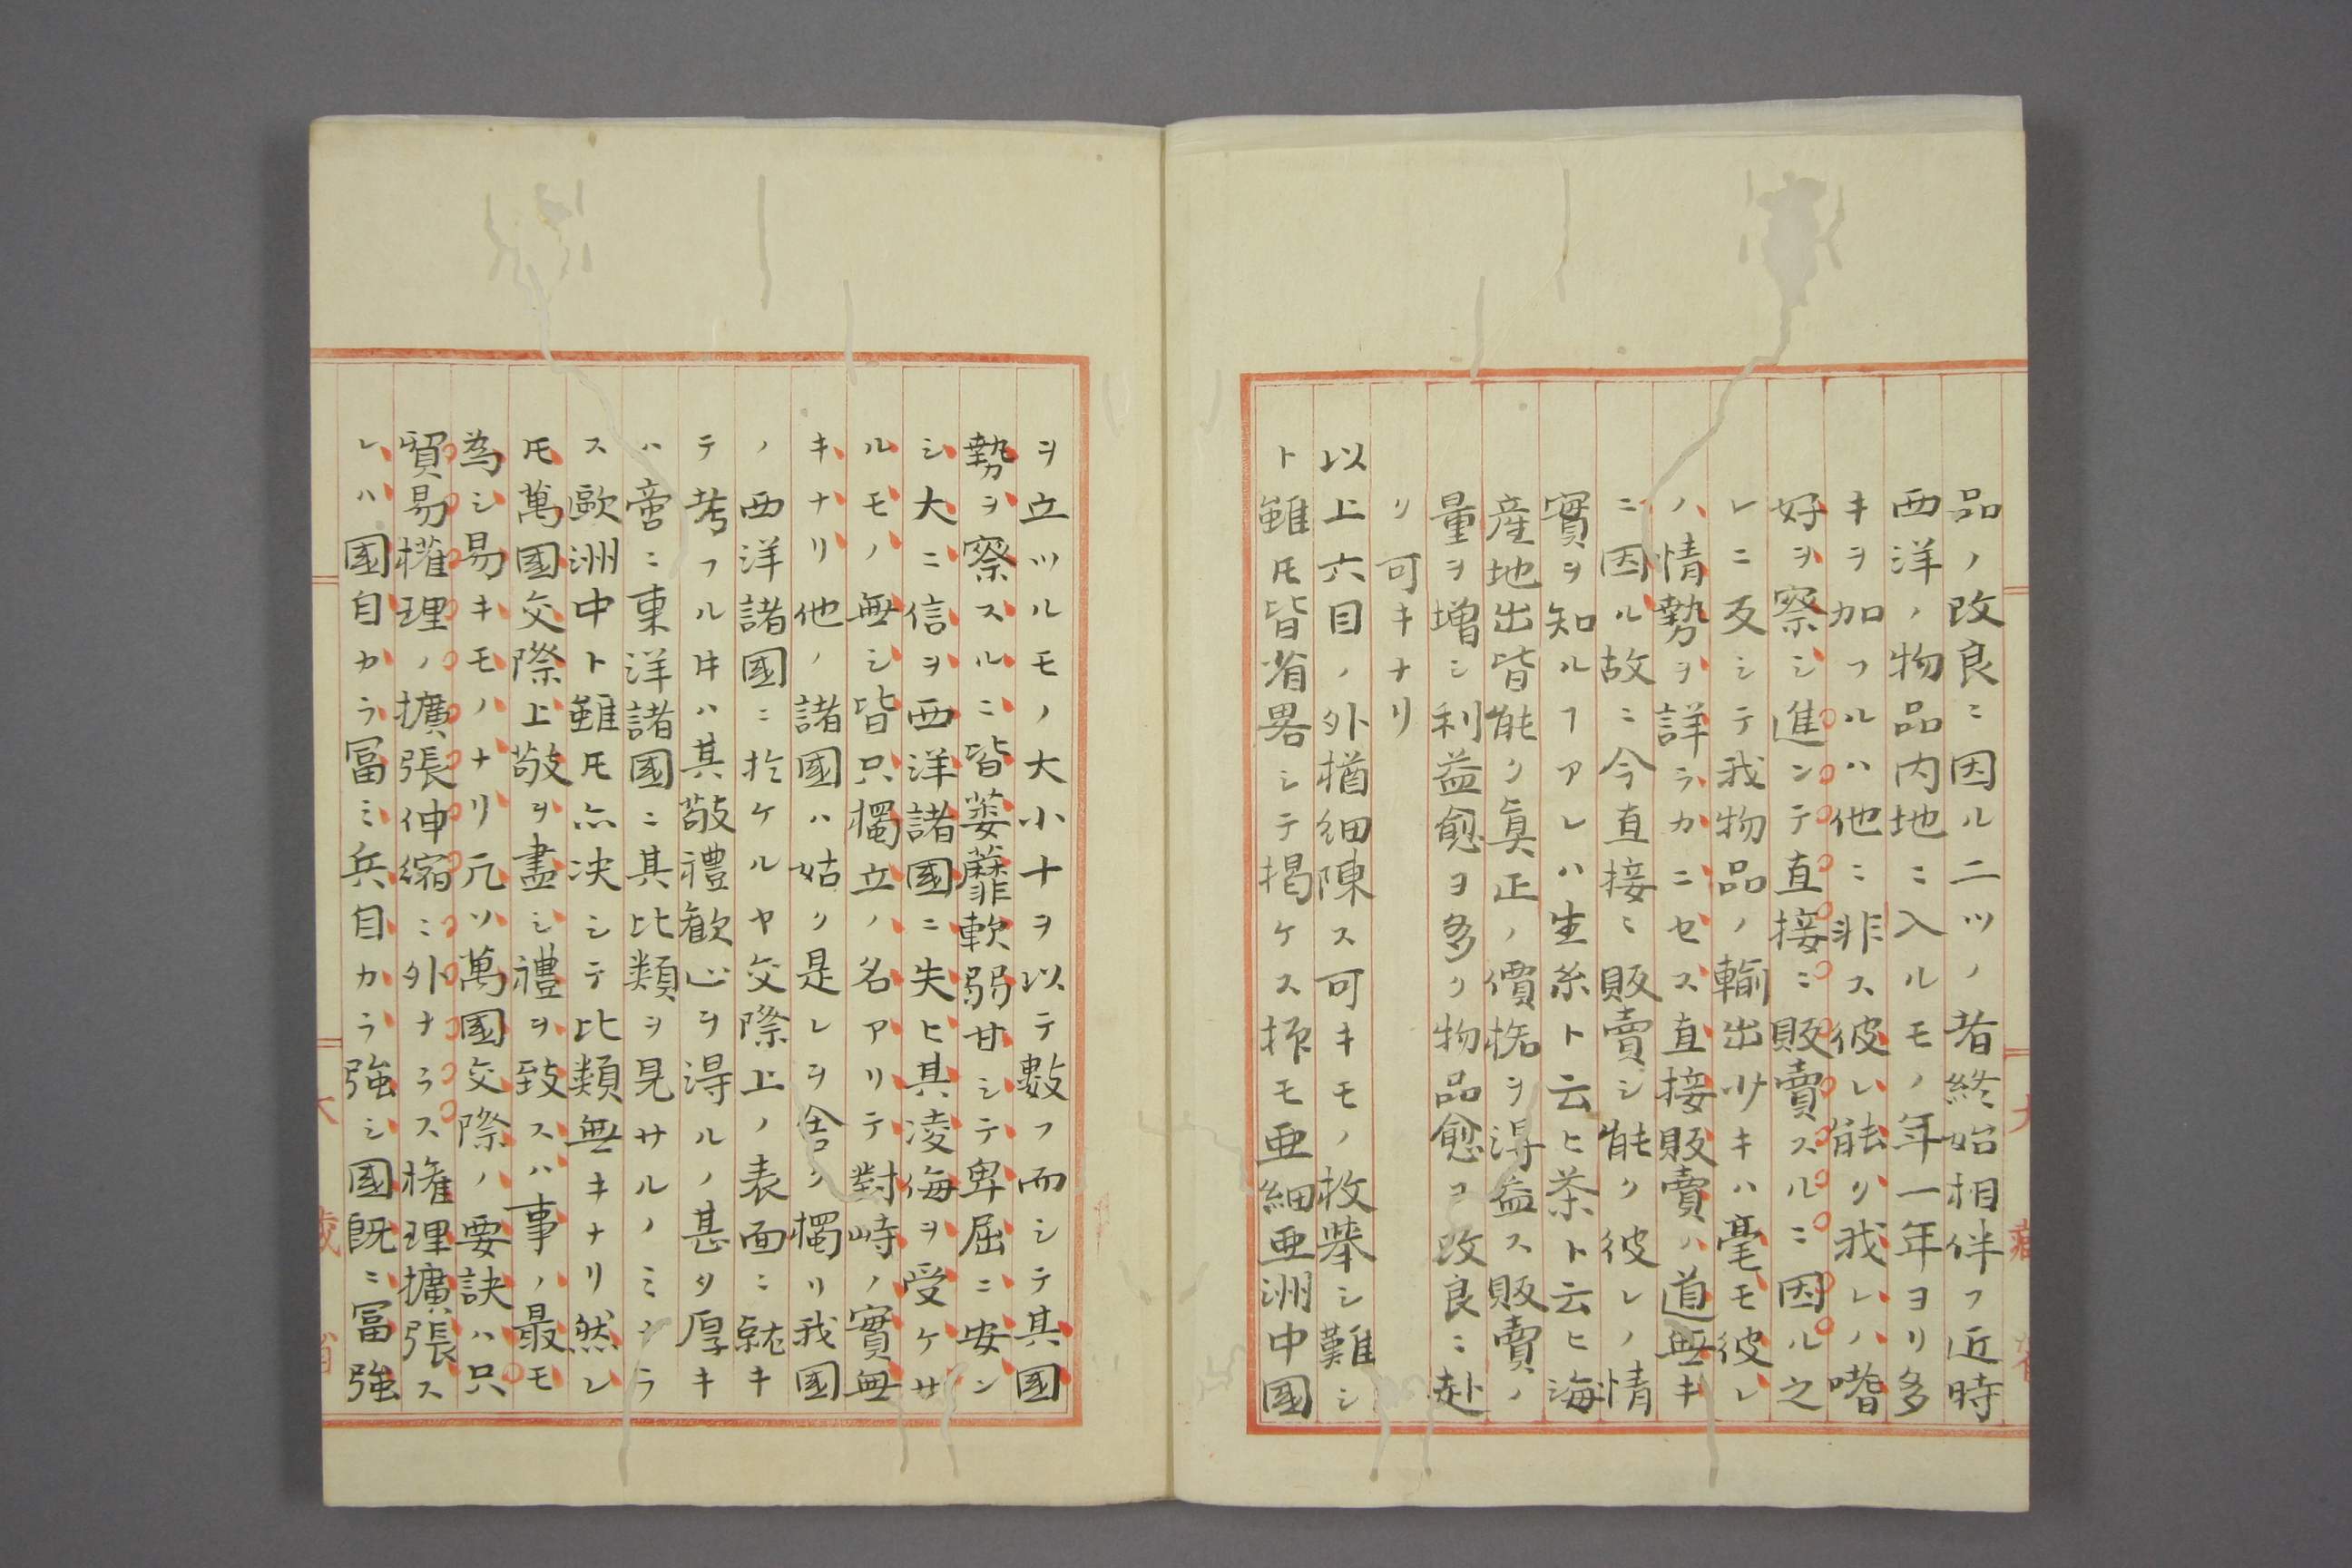 品ノ改良ニ因ル二ツノ者終始相伴フ近時
西洋ノ物品内地ニ入ルモノ年一年ヨリ多
キヲ加フルハ他ニ非ス彼レ能ク我レノ嗜
好ヲ察シ進ンテ直接ニ販賣スルニ因ル之
レニ反シテ我物品ノ輸出少キハ毫モ彼レ
ノ情勢ヲ詳ラカニセス直接販賣ノ道無キ
ニ因ル故ニ今直接ニ販賣シ能ク彼レノ情
實ヲ知ルヿアレハ生糸ト云ヒ茶ト云ヒ海
産地出皆能ク眞正ノ價格ヲ得益ス販賣ノ
量ヲ増シ利益愈ヨ多ク物品愈ヨ改良ニ赴
ク可キナリ
以上六目ノ外猶細陳ス可キモノ枚擧シ難シ
ト雖𪜈皆省畧シテ掲ケス抑モ亜細亜洲中國
ヲ立ツルモノ大小十ヲ以テ數フ而シテ其國
勢ヲ察スルニ皆萎靡軟弱甘シテ卑屈ニ安ン
シ大ニ信ヲ西洋諸國ニ失ヒ其凌侮ヲ受ケサ
ルモノ無シ皆只獨立ノ名アリテ對峙ノ實無
キナリ他ノ諸國ハ姑ク是レヲ舎ク獨リ我國
ノ西洋諸國ニ於ケルヤ交際上ノ表面ニ就キ
テ考フル𪜈ハ其敬禮歓心ヲ得ルノ甚タ厚キ
ハ啻ニ東洋諸國ニ其比類ヲ見サルノミナラ
ス歐洲中ト雖𪜈亦决シテ比類無キナリ然レ
𪜈萬國交際上敬ヲ盡シ禮ヲ致スハ事ノ最モ
為シ易キモノナリ元ツ萬國交際ノ要訣ハ只
貿易権理ノ擴張伸縮ニ外ナラス権理擴張ス
レハ國自カラ冨ミ兵自カラ強シ國既ニ冨強